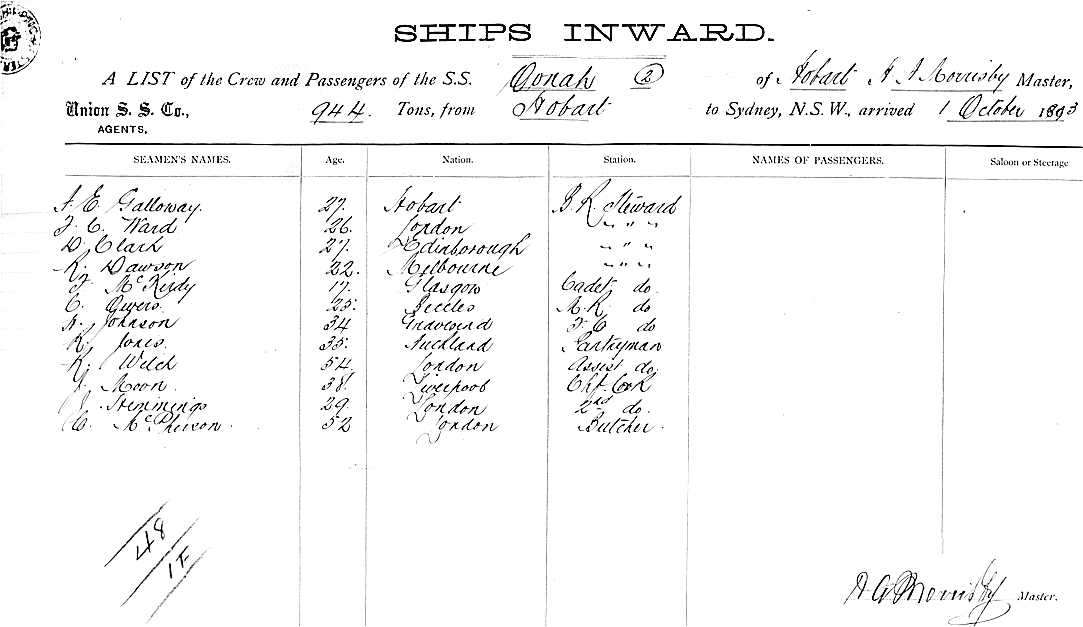 SHIPS INWARD.
A LIST of the Crew and Passengers of the S.S. Oonah (2) of Hobart A J Morrisby Master,
Union S. S. Co., AGENTS, 944 Tons, from Hobart to Sydney, N.S.W., arrived 1 October 1893
SEAMEN'S NAMES. Age. Nation. Station. NAMES OF PASSENGERS. Saloon or Steerage
E Galloway. 27. Hobart B. R. Steward
C. Ward 26. London " " "
D. Clark 27. Edinborough " " "
R. Dawson 22. Melbourne " " "
McKirdy 17 Glasgow Cadet do.
C. Owers 25. Beccles M. R. do
Johnson 34 Gravesend F C do
R. Jones. 35. Auckland Pantryman
R. Welch 54. London Assist do.
J. Moon. 38. Liverpool Chf. Cook
J. Stemmings 29. London 2nd do.
C. McPherson. 52 London Butcher.
48
1F
A G Morrisby Master.